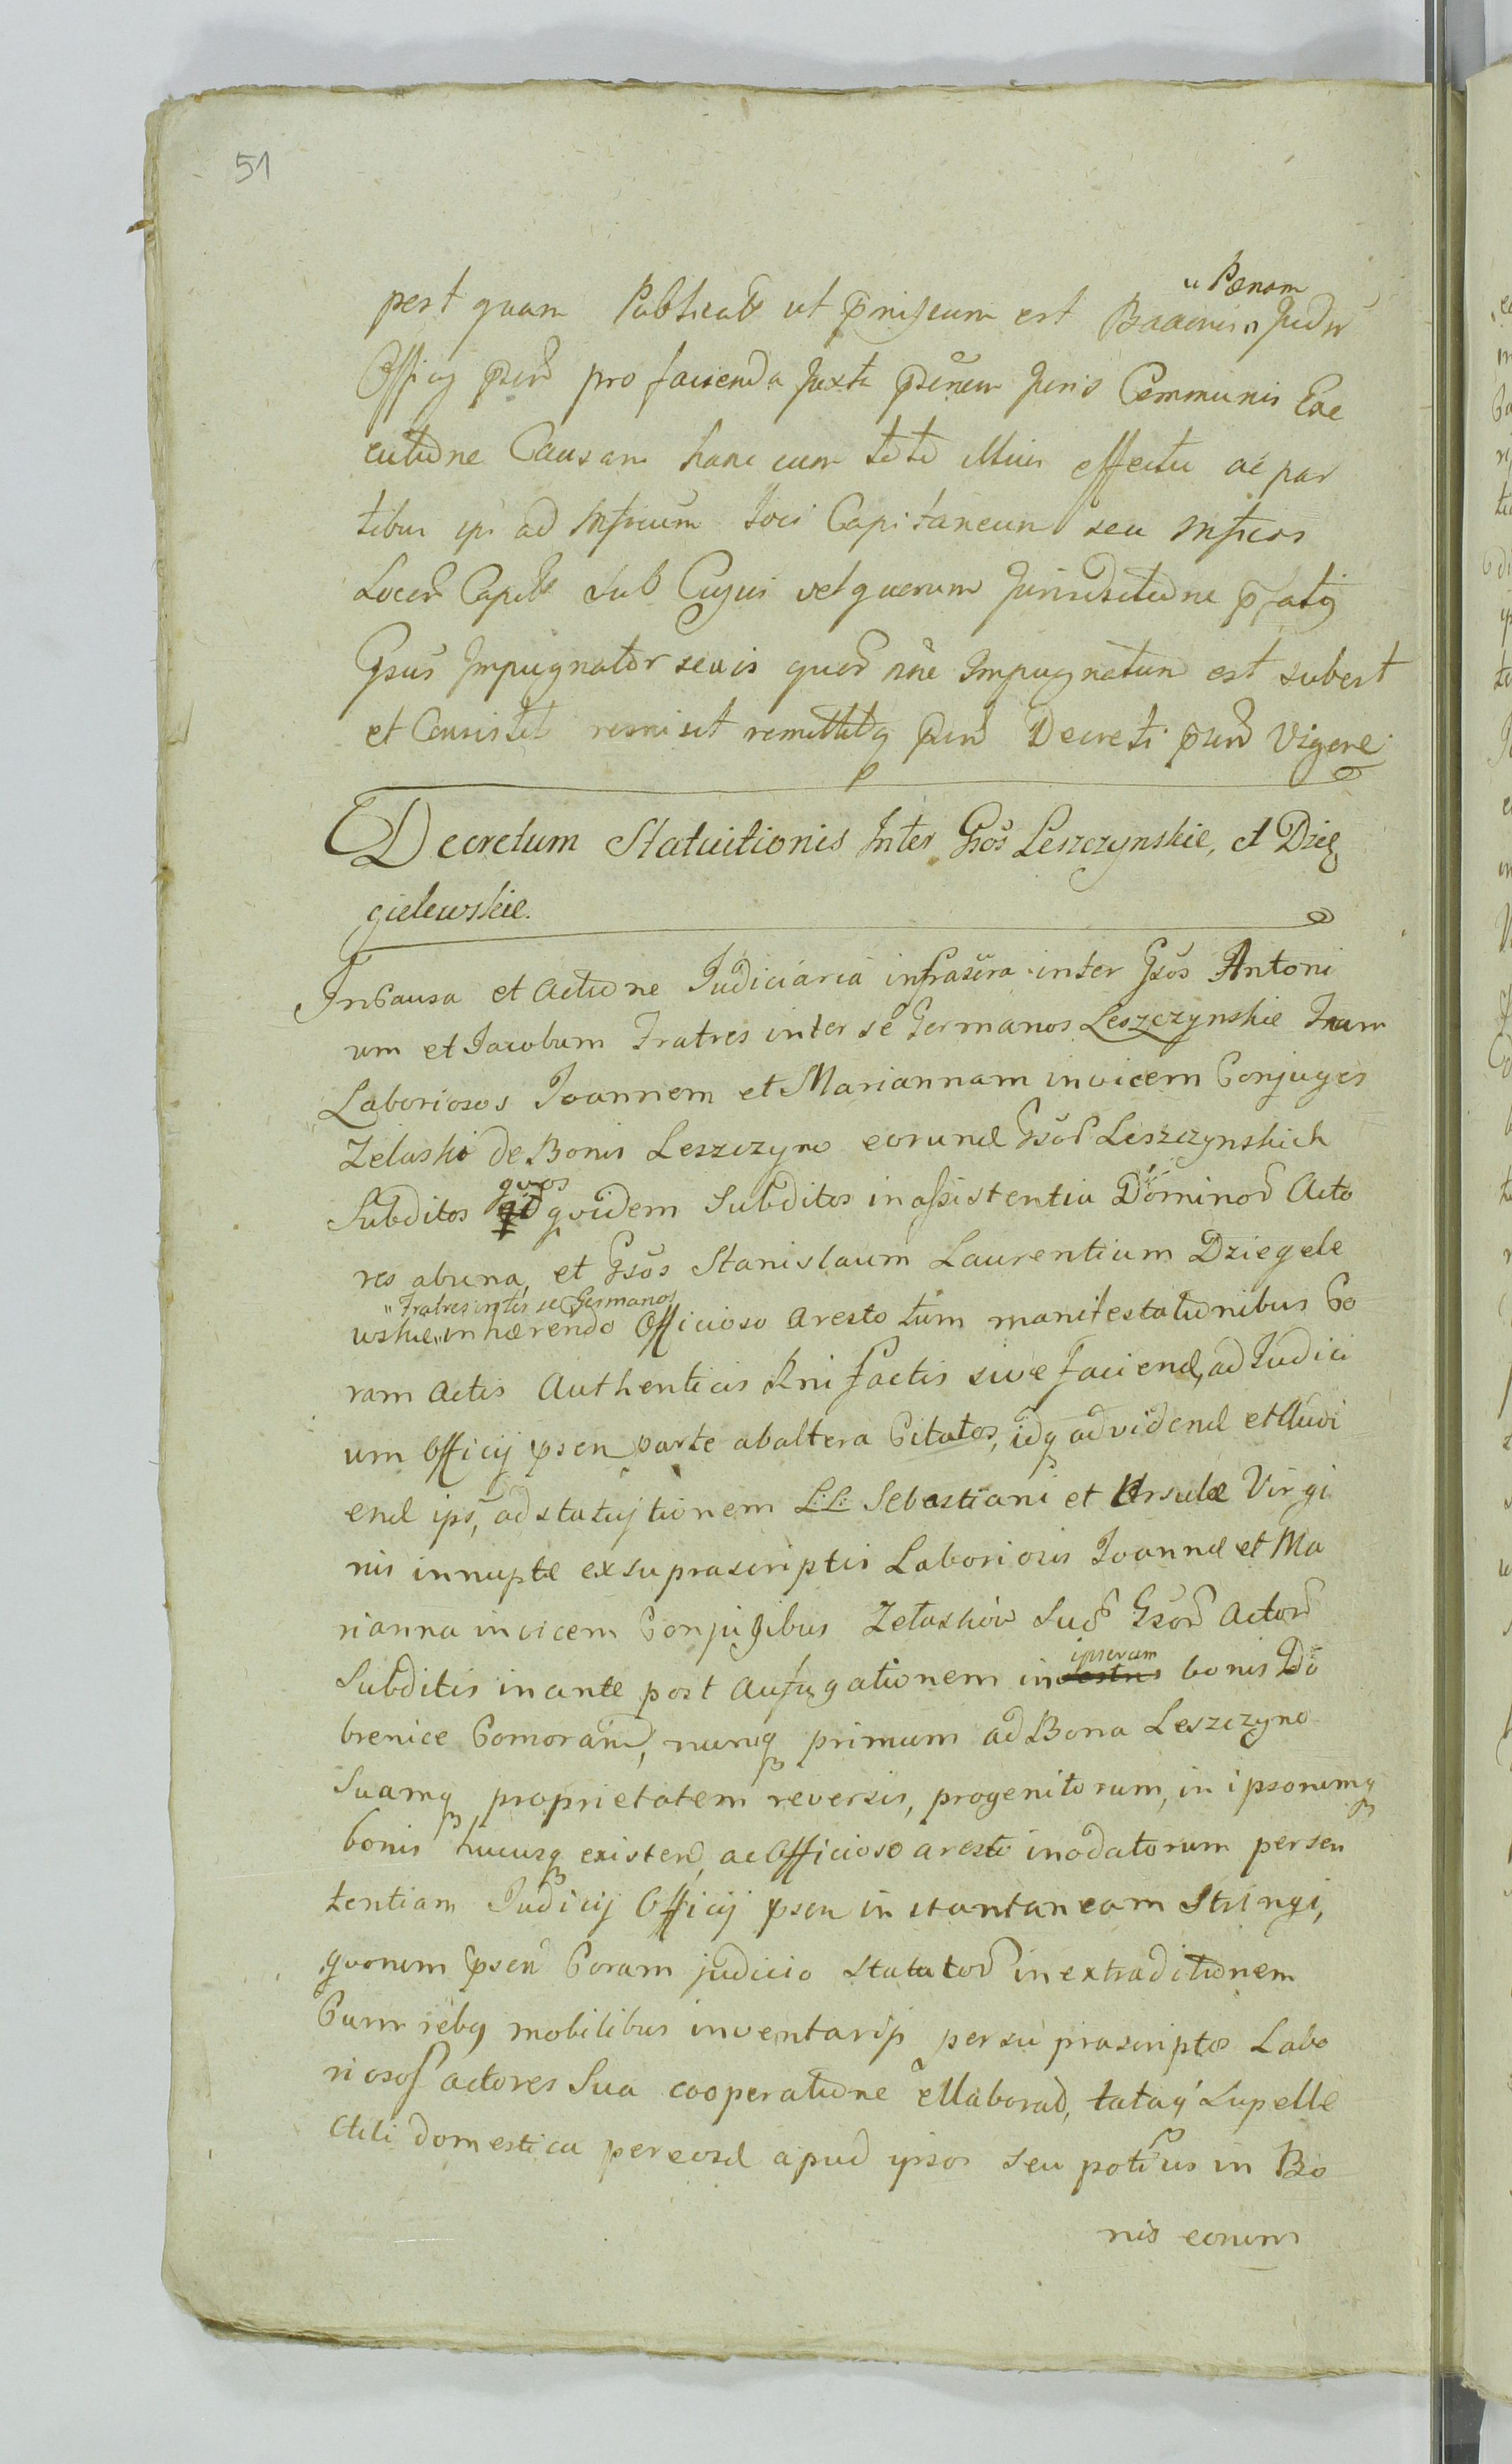 51
post quam Publicatã ut p̃missum est Bannis „ Pœnam Judŭ
Officy p̃sen̄ pro facienda Juxta p̃senem Juris Communis Exe
cutione Causam hanc cum toto illius effectu ac par
tibus ips ad Mfficum loci Capitaneum seu Mfficos
Locor̃ Capit̃ sub Cujus vel quorum Jurisdictione p̃fatg
Gsus Impugnator seu is quod n̄ne Impugnatum est subest
et Consistit remisit remittitq p̃sen̄ Decreti p̃sen̄ Vigore
Decretum Statuitionis Inter Gsos Leszczynskie, et Dzię
gielewskie.
In Causa et Actione Judiciaria infrascra inter Gsos Antoni
um et Jacobum Fratres inter se Germanos Leszczynskie Tum
Laboriosos Joannem et Mariannam invicem Conjuges
Zelaski de Bonis Leszczyno eorund Gsor̃ Leszczynskich
Subditos quos quidem Subditos in assistentia Dominor̃ Acto
res ab una, et Gsos Stanislaum Laurentium Dziegele
wskie „Fratres inter se Germanos„ inhærendo Officioso aresto tum manifestationibus Co
ram Actis Authenticis Rni factis sive faciend, ad Judici
um Officij p̃sen parte ab altera Citatos, idq ad videnď et Audi
enď ips, ad statuitionem L:L: Sebastiani et Ursulæ Virgi
nis innuptæ ex supra scriptis Laboriosis Joanne et Ma
rianna invicem Conjugibus Zelaskow Sup̃ Gsor̃ Actor̃
Subditis in ante post Aufugationem in ipsorum bonis Do
brenice Comoran̄, nunq primum ad Bona Leszczyno
Suamq proprietatem reversis, progenitorum, in ipsorumq
bonis hucusq existen̄, ac Officioso aresto inodatorum per sen
tentiam Judicij Officij p̃sen in stantaneam Stringi,
quorum p̃sen̄ Coram judicio statutor̃ in extraditionem
Cum rebq mobilibus inventarijs per su prascriptos Labo
riosos actores Sua cooperatione ellaborať, totaq Supelle
ctili domestica per eosď apud ipsos seu potius in Bo
nis eorum